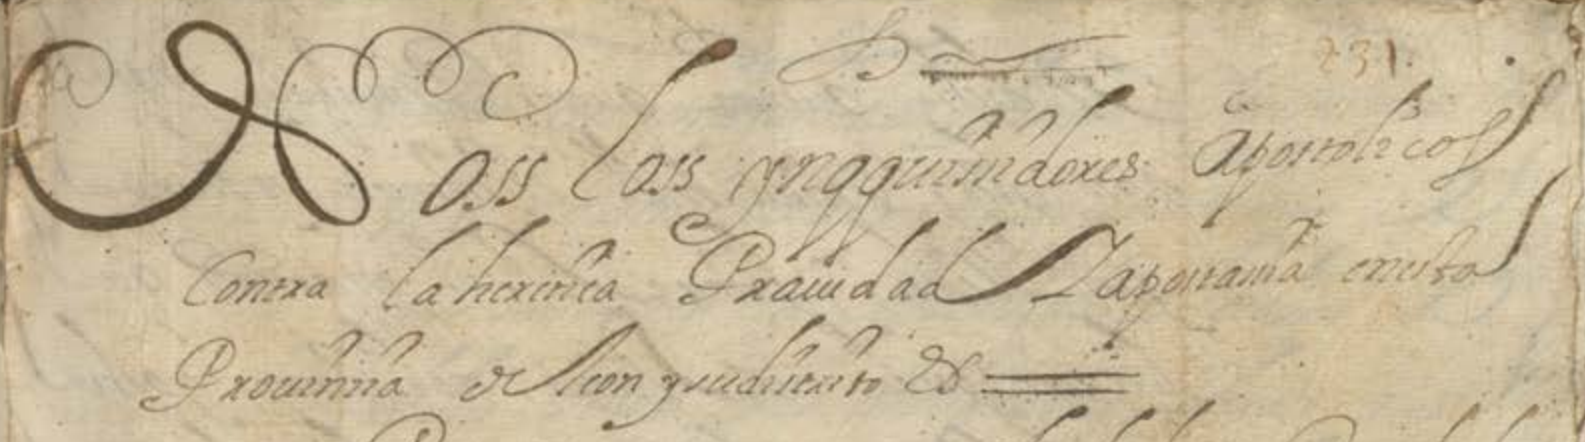 231.
Noss Loss ynqquisidores apostolicos
Contra la heretica Pravedad Y apostasia en esta
Provincia de leon y su distrito &